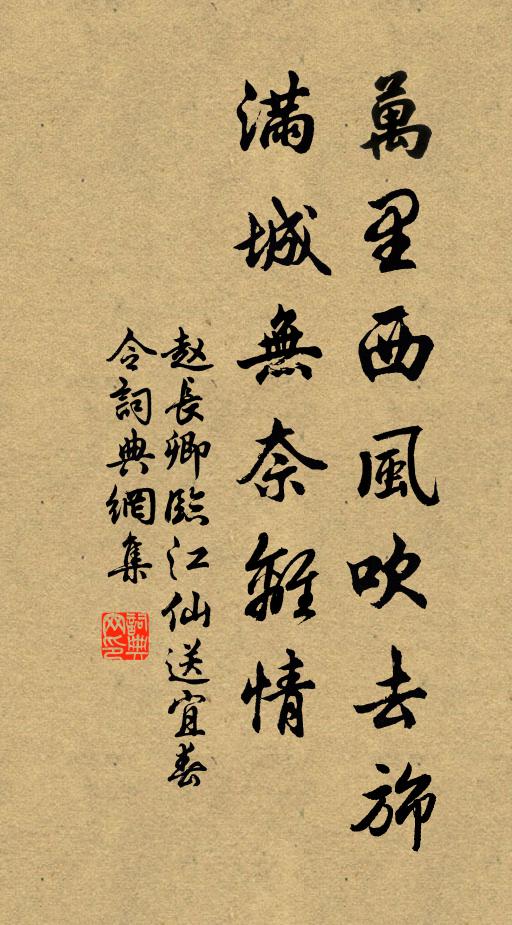 萬里西風吹去旆
滿城無奈離情
赵長卿臨江仙送宜春
令詞典網集
詞典網印